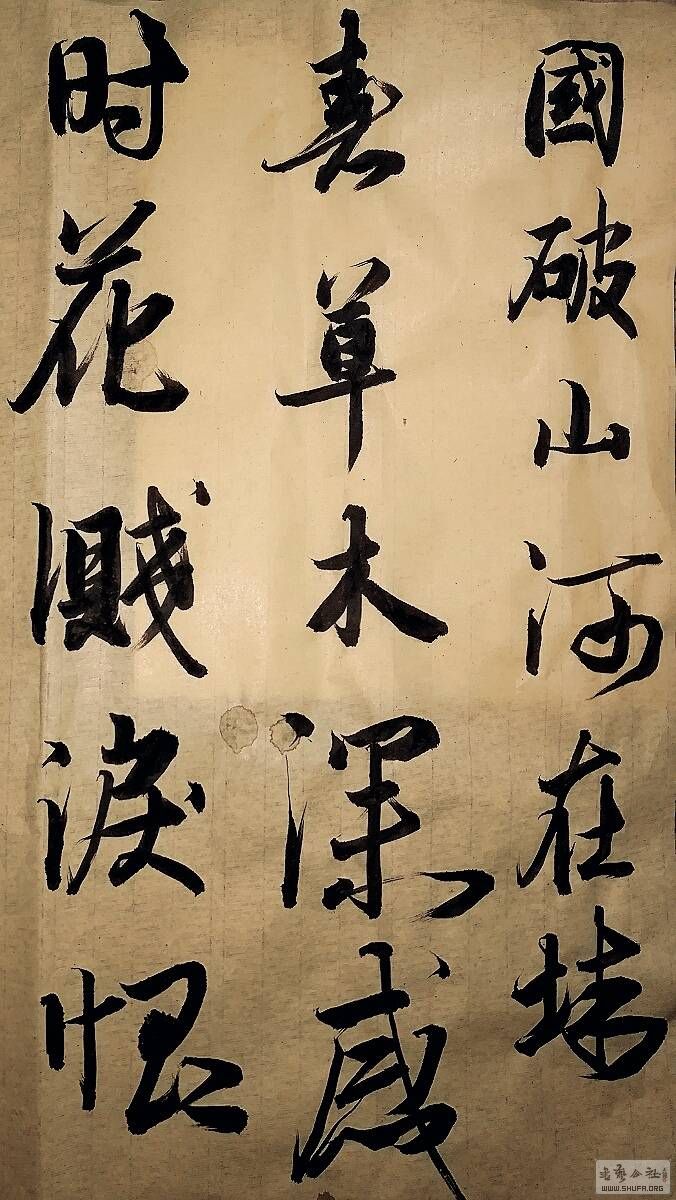 國破山河在城
春草木深感
时花濺淚恨
書藝公社
WWW.SHUFA.ORG